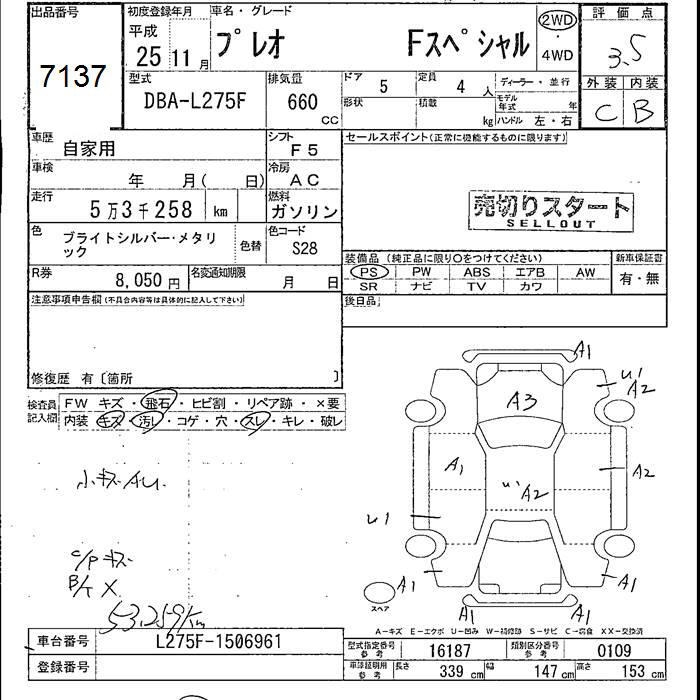 出品番号
7137
初度登録年月
平成
25 11 月
車名・グレード
プレオ Fスペシャル
2WD
・
4WD
評価点
3.5
外装 内装
C B
型式
DBA-L275F
排気量
660
cc
ドア 5
定員 4 人
ディーラー・並行
形状
積載 kg
モデル年式 年
ハンドル 左・右
車歴
自家用
シフト
F5
車検
年 月( 日)
冷房
AC
走行
5万3千258 km
燃料
ガソリン
色
ブライトシルバー・メタリック
色替
色コード
S28
R券
8,050円
名変通知期限
月 日
セールスポイント(正常に機能するものに限ります)
売切りスタート
SELLOUT
装備品(純正品に限り○をつけてください)
新車保証書
PS PW ABS エアB AW
有・無
SR ナビ TV カワ
後日品
注意事項申告欄(不具合内容等は具体的に記入して下さい)
修復歴 有〔箇所 〕
検査員
記入欄
FW キズ・飛石・ヒビ割・リペア跡・×要
内装 キズ・汚レ・コゲ・穴・スレ・キレ・破レ
小キズAU.
C/Pキズ
B/T X
53,259km
A1
U1
A2
A3
A1
U1
A2
A2
U1
A1
A1
スペア
A1
A1
A-キズ E-エクボ U-凹み W-補修跡 S-サビ C-腐食 XX-交換済
車台番号
L275F-1506961
登録番号
型式指定番号
参考
16187
類別区分番号
参考
0109
車検証明用
参考
長さ 339 cm
幅 147 cm
高さ 153 cm